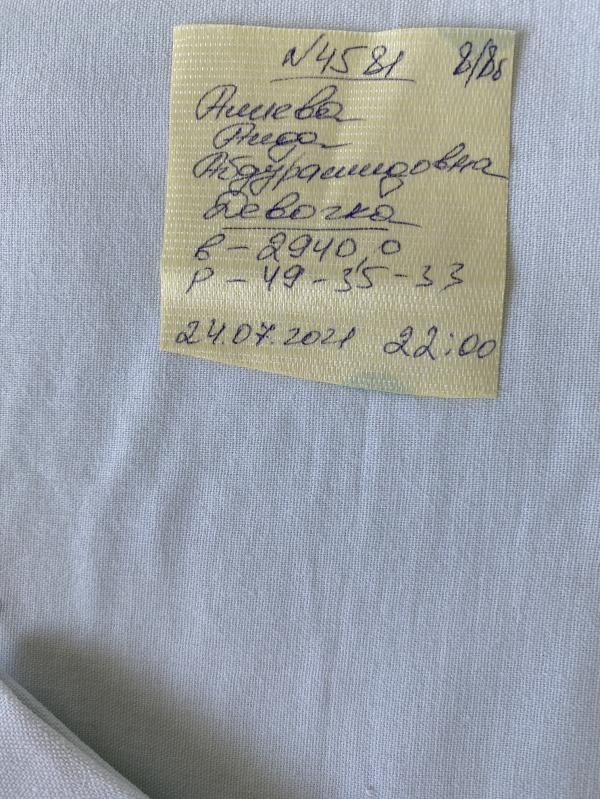 N4581 8/8б
Алиева
Аида
Абдурашидовна
Девочка
в – 2940,0
р – 49 – 35 – 33
24.07.2021 22:00